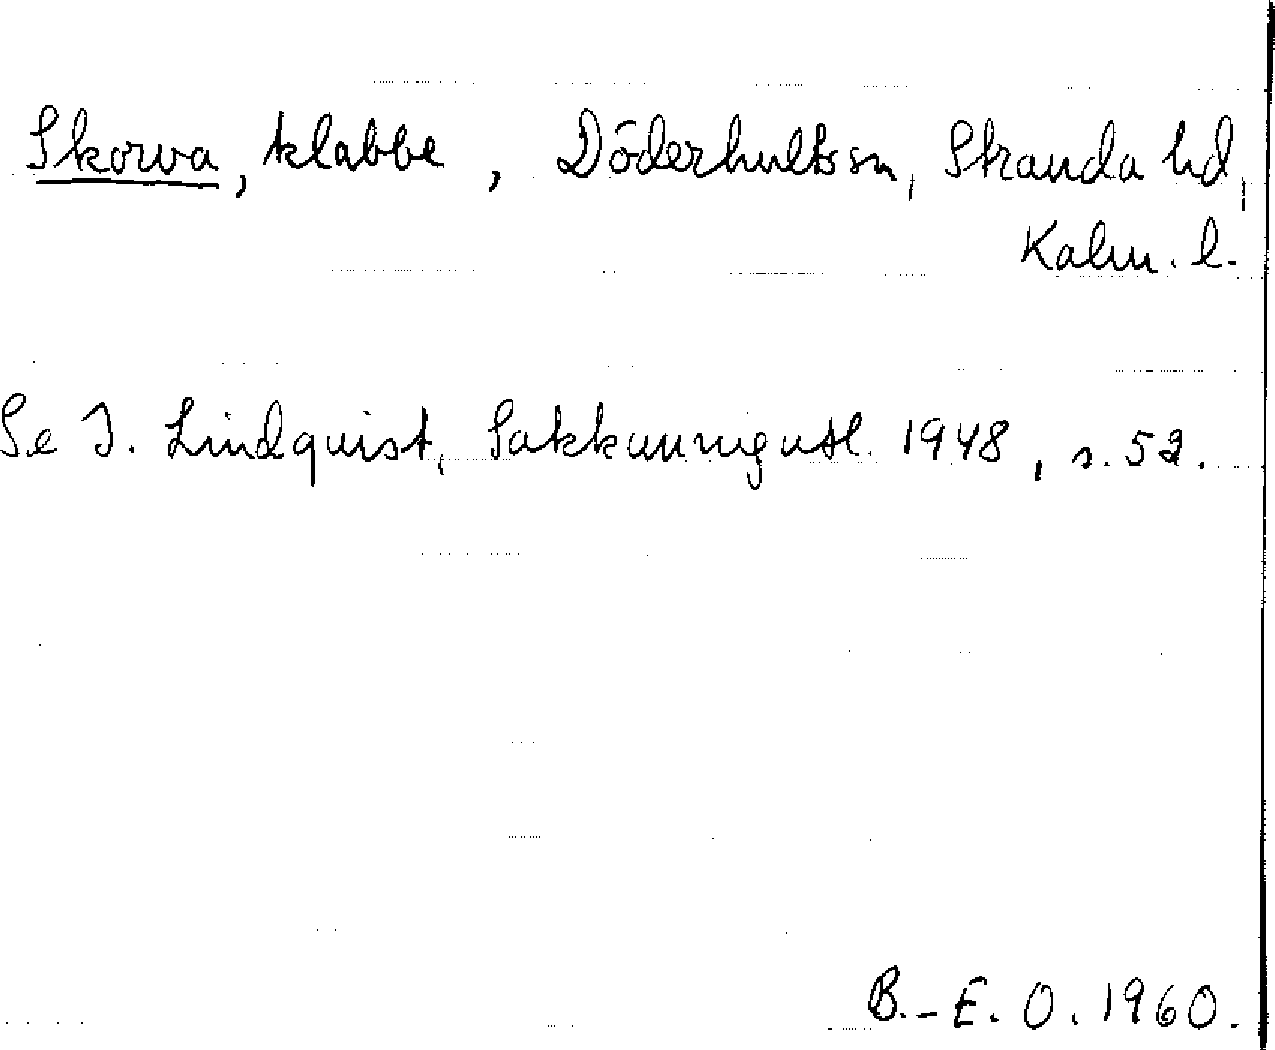 Skorva, klabbe, Döderhults sn, Stranda hd,
Kalm. l.
Se I. Lindquist, Sakkunnigutl. 1948, s. 52.
B.-E. O. 1960.